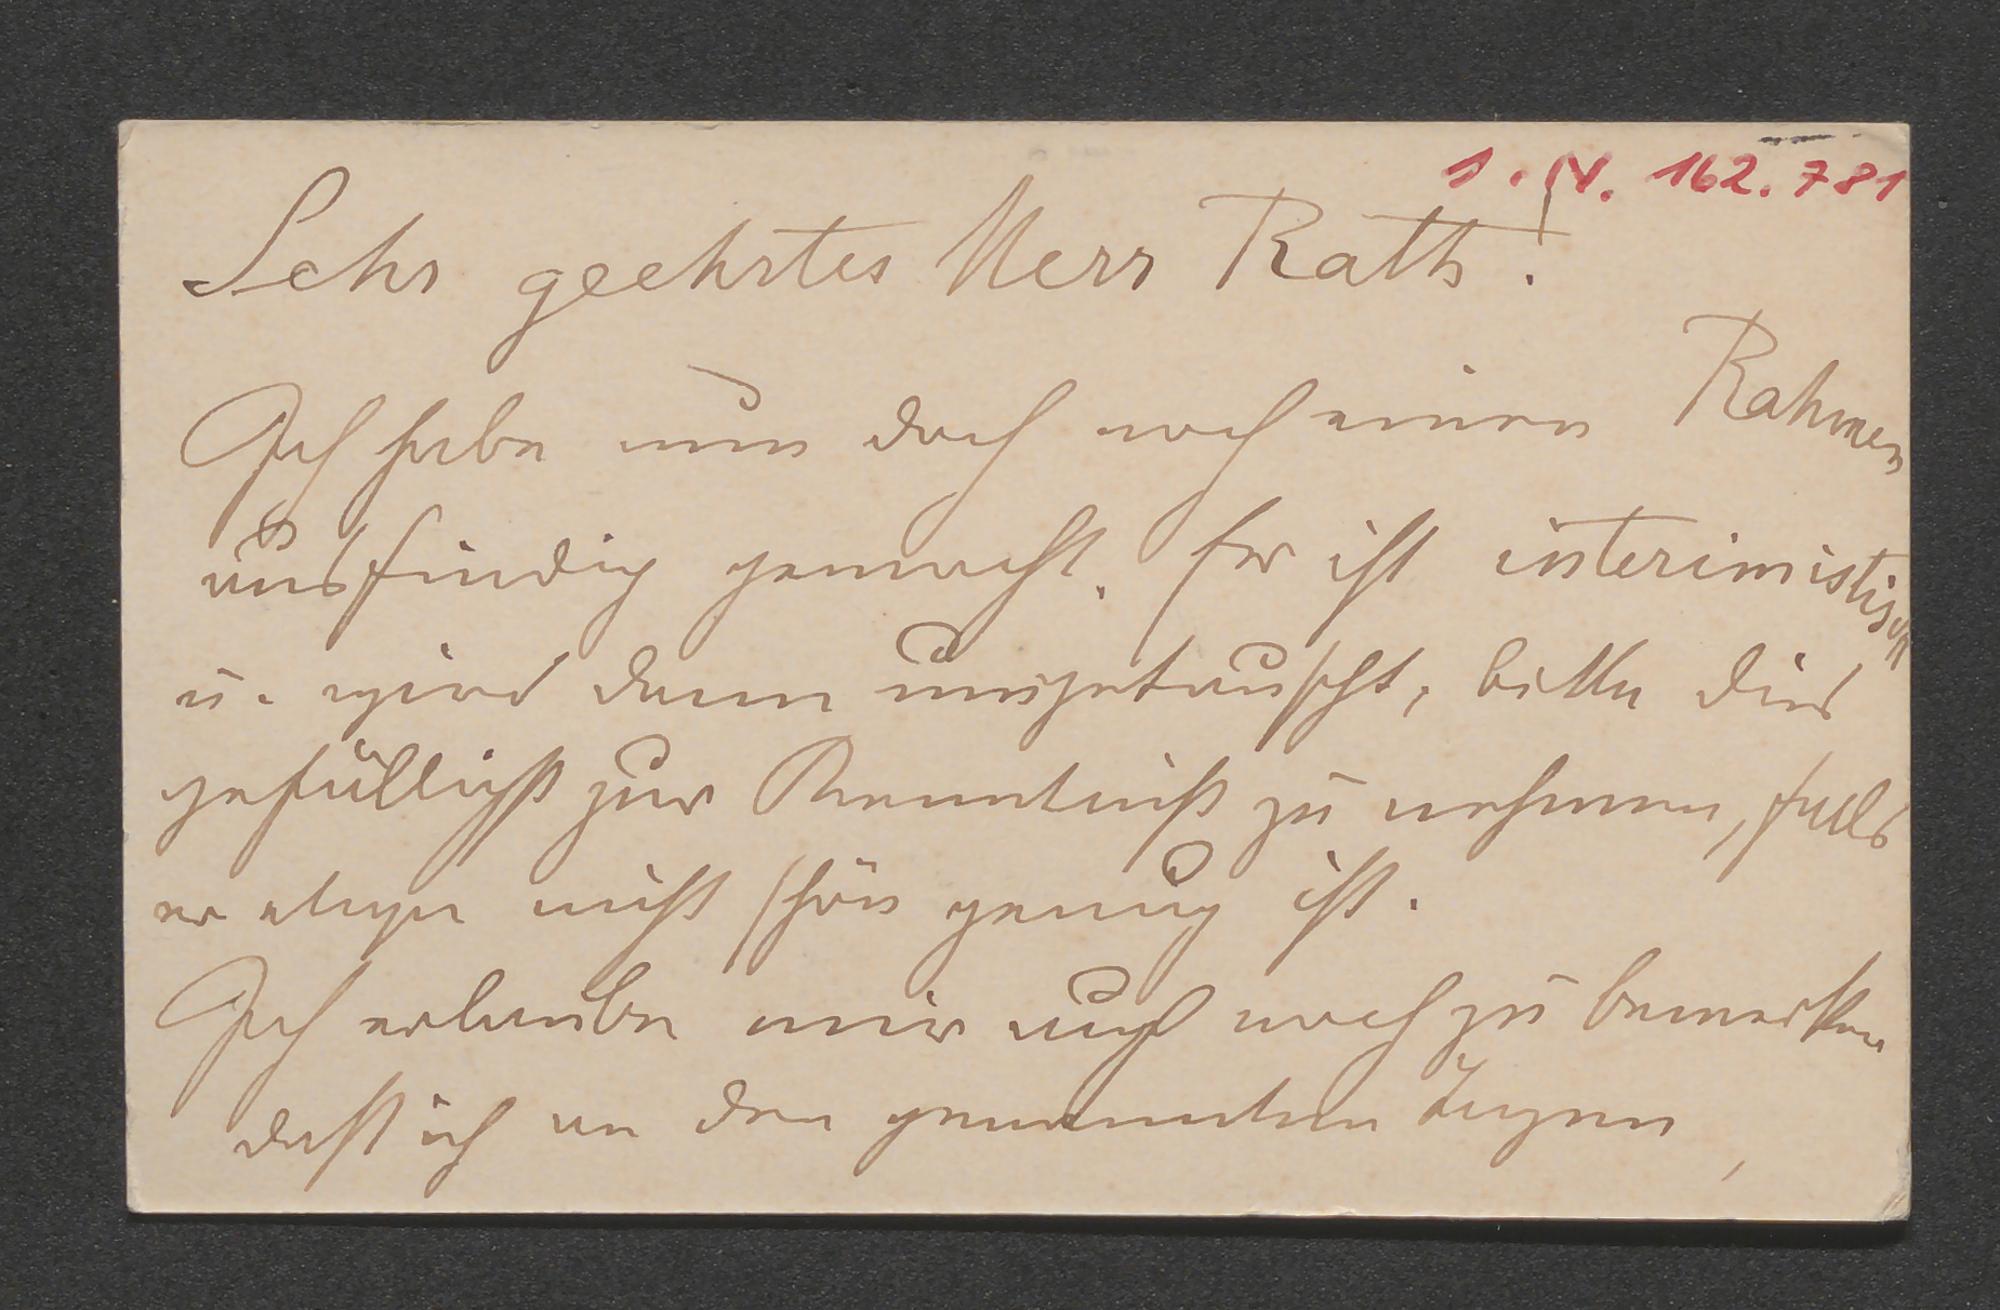 I. N. 162.781
Sehr geehrter Herr Rath!
Ich habe nun doch noch einen Rahmen
ausfindig gemacht. Er ist interimistisch
u. wird dann umgetauscht, bitte dies
gefälligst zur Kenntniß zu nehmen, falls
er etwa nicht schön genug ist.
Ich erlaube mir auch noch zu bemerken
daß ich an den genannten Tagen,